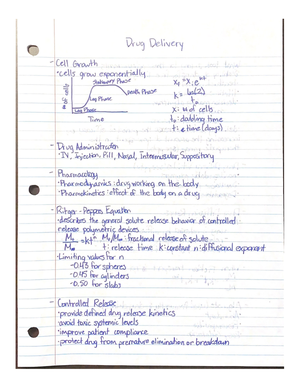 Drug Delivery
- Cell Growth
• cells grow exponentially
Stationary Phase
Death Phase
Log Phase
Lag Phase
# of cells
Time
k = ln(2)/t
x: # of cells
t: doubling time
t: time (days)
- Drug Administration
• IV, Injection, Pill, Nasal, Intermuscular, Suppository
- Pharmacology
• Pharmodynamics: drug working on the body
• Pharmokinetics: effect of the body on a drug
- Ritger-Peppas Equation
- describes the general solute release behavior of controlled
release polymetric devices
Mt/M∞ = ktⁿ Mt/M∞: fractional release of solute
t: release time k: constant n: diffusional exponent
- Limiting values for n
- 0.43 for spheres
- 0.45 for cylinders
- 0.50 for slabs
- Controlled Release
• provide defined drug release kinetics
• avoid toxic systemic levels
• improve patient compliance
• protect drug from premature elimination or breakdown